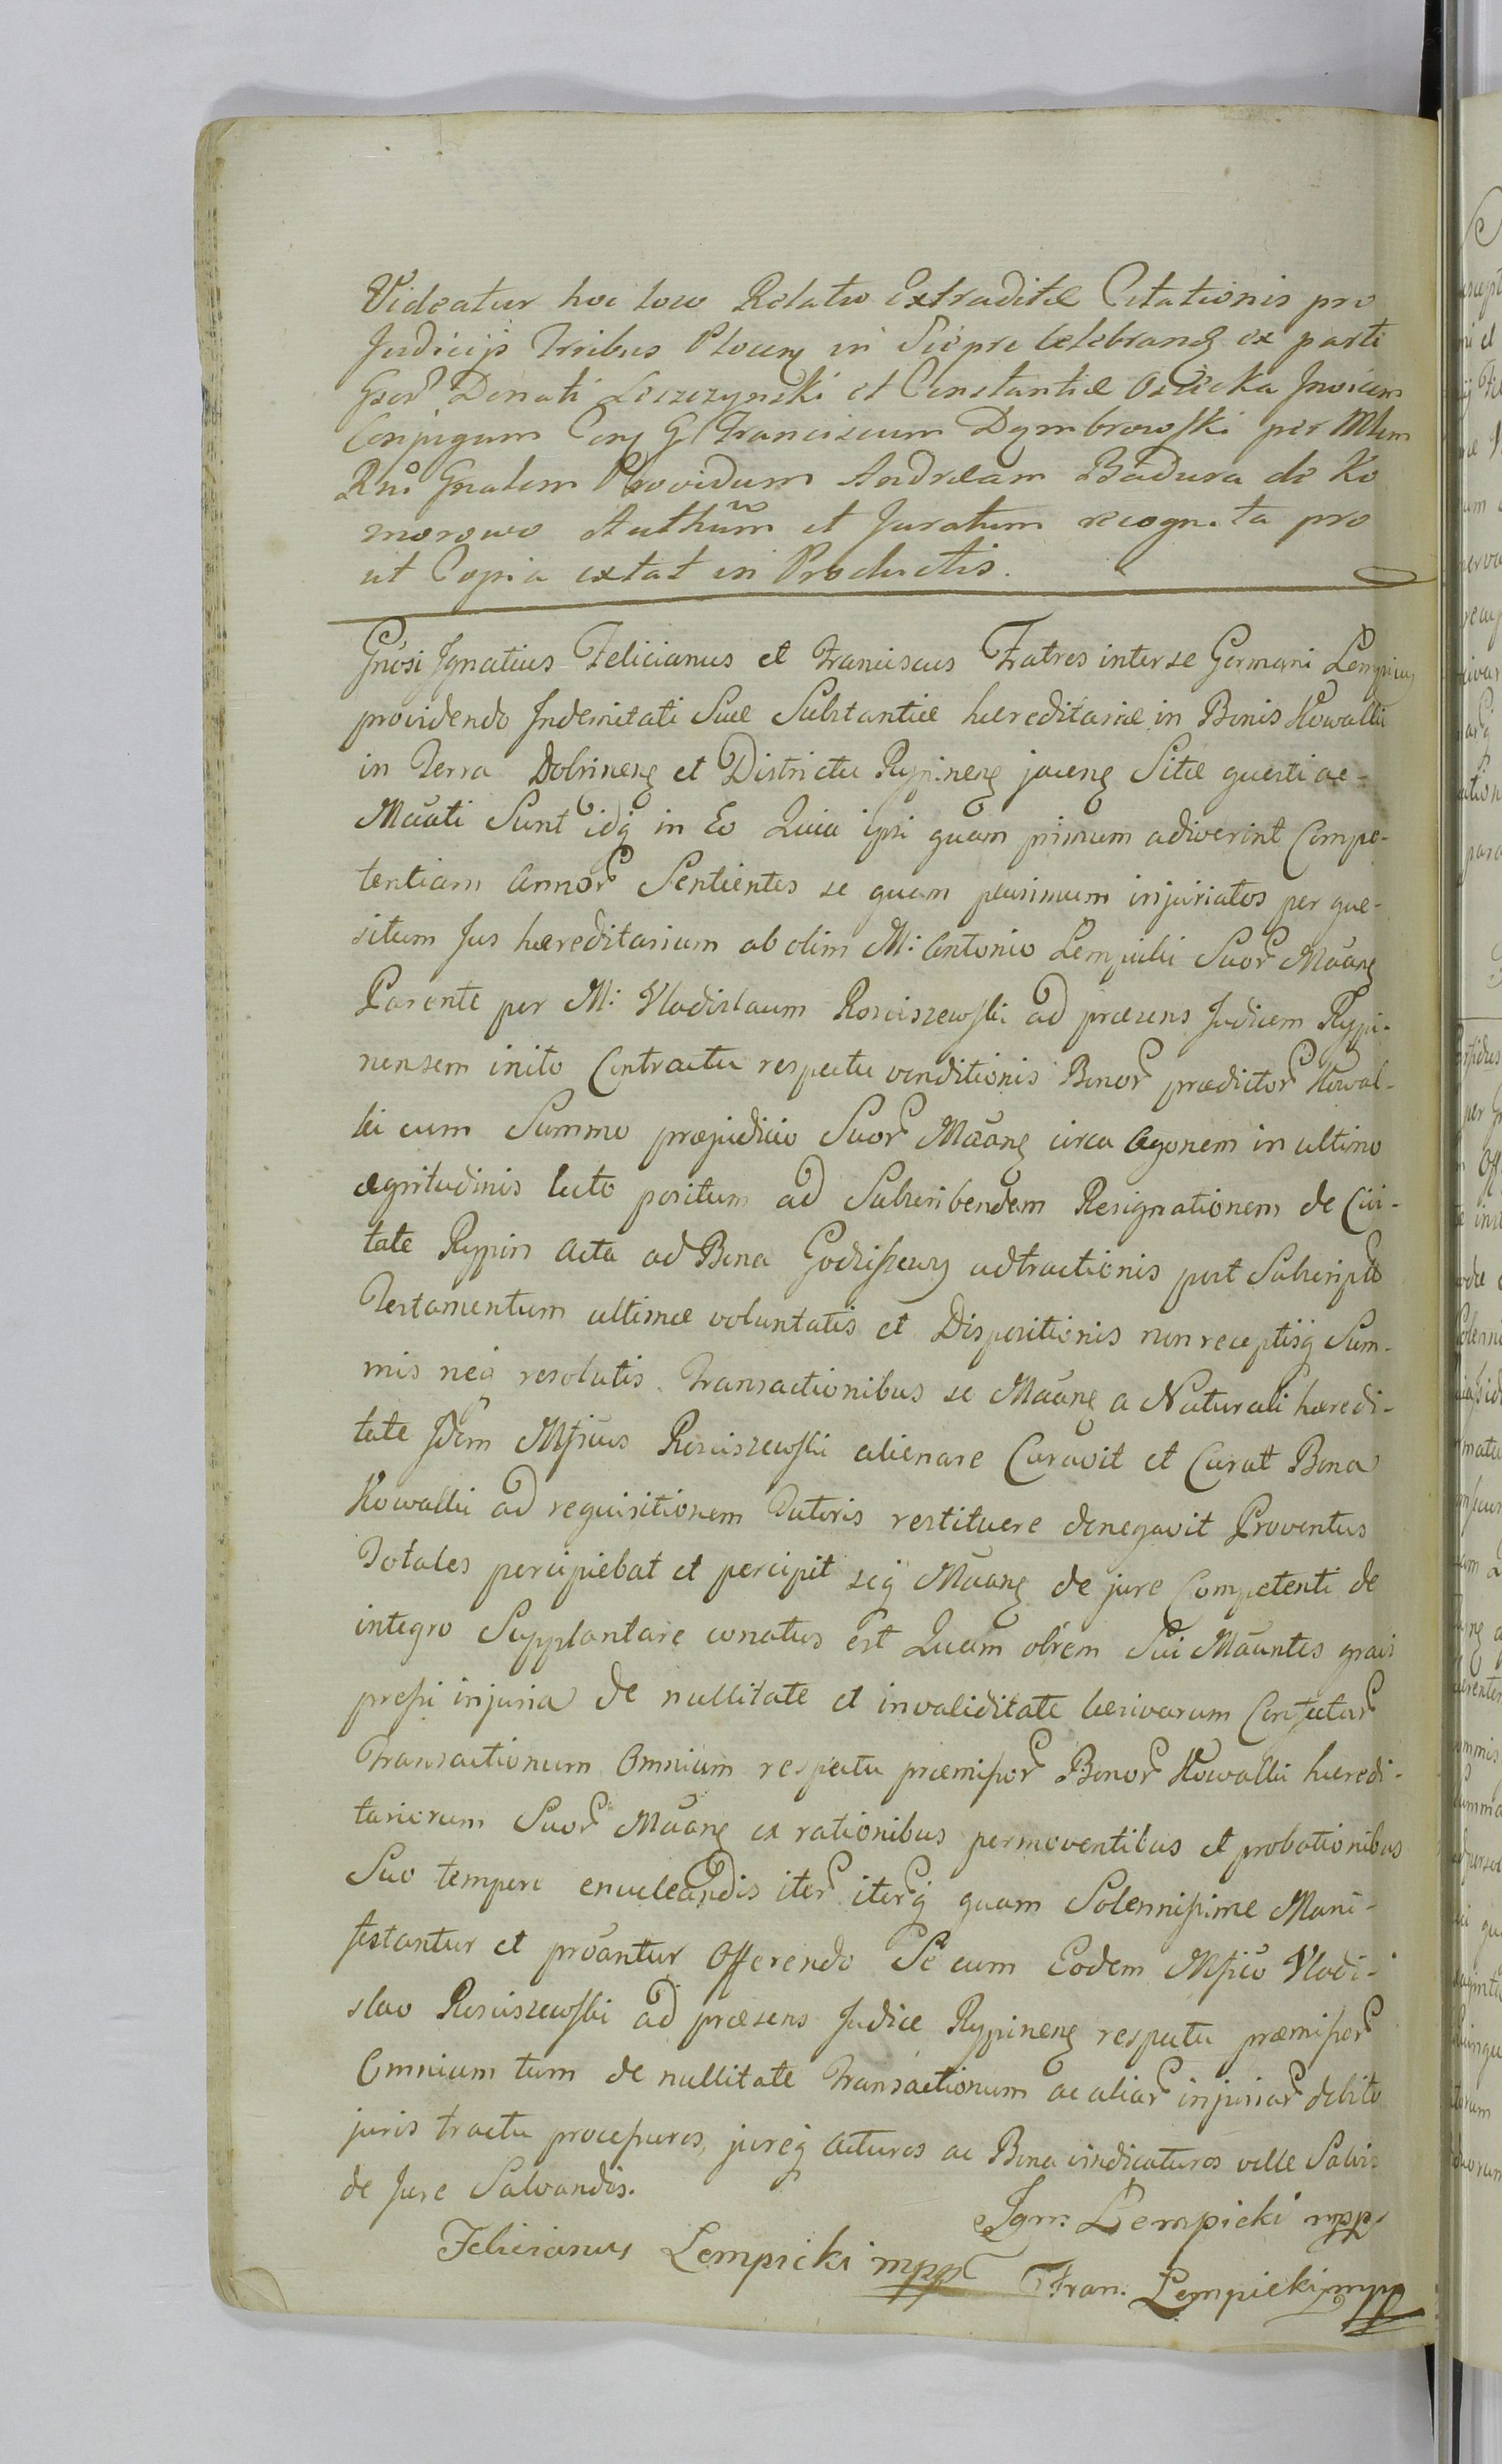 Videatur hoc loco Relatio Extraditæ Citationis pro
Judicijs Tribus Plocen in Siepre celebrand ex parte
Gsor Donati Leszczynski et Constantiæ Osiecka Invicem
Conjugum Con G Franciscum Dymbrowski per Mlem
Rni Gnalem Providum Andræam Badura de Ko
morowo Authum et Juratum recognita pro
ut Copia extat in Productis.
Gnosi Ignatius Felicianus et Franciscus Fratres inter se Germani Lempicy
providendo Indemitati Suæ Substantiæ hæreditariæ in Bonis Kowalki
in Terra Dobrinen et Districtu Rypinen jacen Sitæ questi ac-
Mauti Sunt idq in Eo Quia ipsi quam primum adiverint Compe-
tentiam Annor Sentientes se quam plurimum injuriatos per quæ-
situm Jus hæreditarium ab olim M: Antonio Lempicki Suor Mãan
Parente per M: Vladislaum Rosciszewski ad præsens Judicem Rypi-
nensem inito Contractu respectu venditionis Bonor prædictor Kowal-
ki cum Summo præjudicio Suor Mãan circa Agonem in ultimo
ægritudinis lecto positum ad Subscribendam Resignationem de Civi-
tate Rypin Acta ad Bona Godziszewy adtractionis post Subscripto
Testamentum ultimæ voluntatis et Dispositionis non receptisq Sum-
mis neq resolutis. Transactionibus se Mãan a Naturali hæredi-
tate Idem Mficus Rosciszewski alienare Curavit et Curat Bona
Kowalki ad requisitionem Tutoris restituere denegavit Proventus
Totales percipiebat et percipit seq Mãan de jure Competenti de
integro Supplantare conatus est Quam obrem Sui Mãantes gravi
pressi injuria de nullitate et invaliditate
Transactionum Omnium respectu præmissor Bonor Kowalki hæredi-
tariorum Suor Mãan ex rationibus permoventibus et probationibus
Suo tempore enucleandis iter iterq quam Solennissime Mani-
festantur et proantur Offerendo Se cum Eodem Mfico Vladi-
slao Rosciszewski ad præsens Judice Rypinen respectu præmissor
Omnium tum de nullitate Transactionum ac aliar injuriar debito
juris tractu processuros, jureq Acturos ac Bona vindicaturos velle Salvis
de Jure Salvandis.
Ign: Lempicki mpp
Felicianus Lempicki mpp
Fran. Lempicki mpp